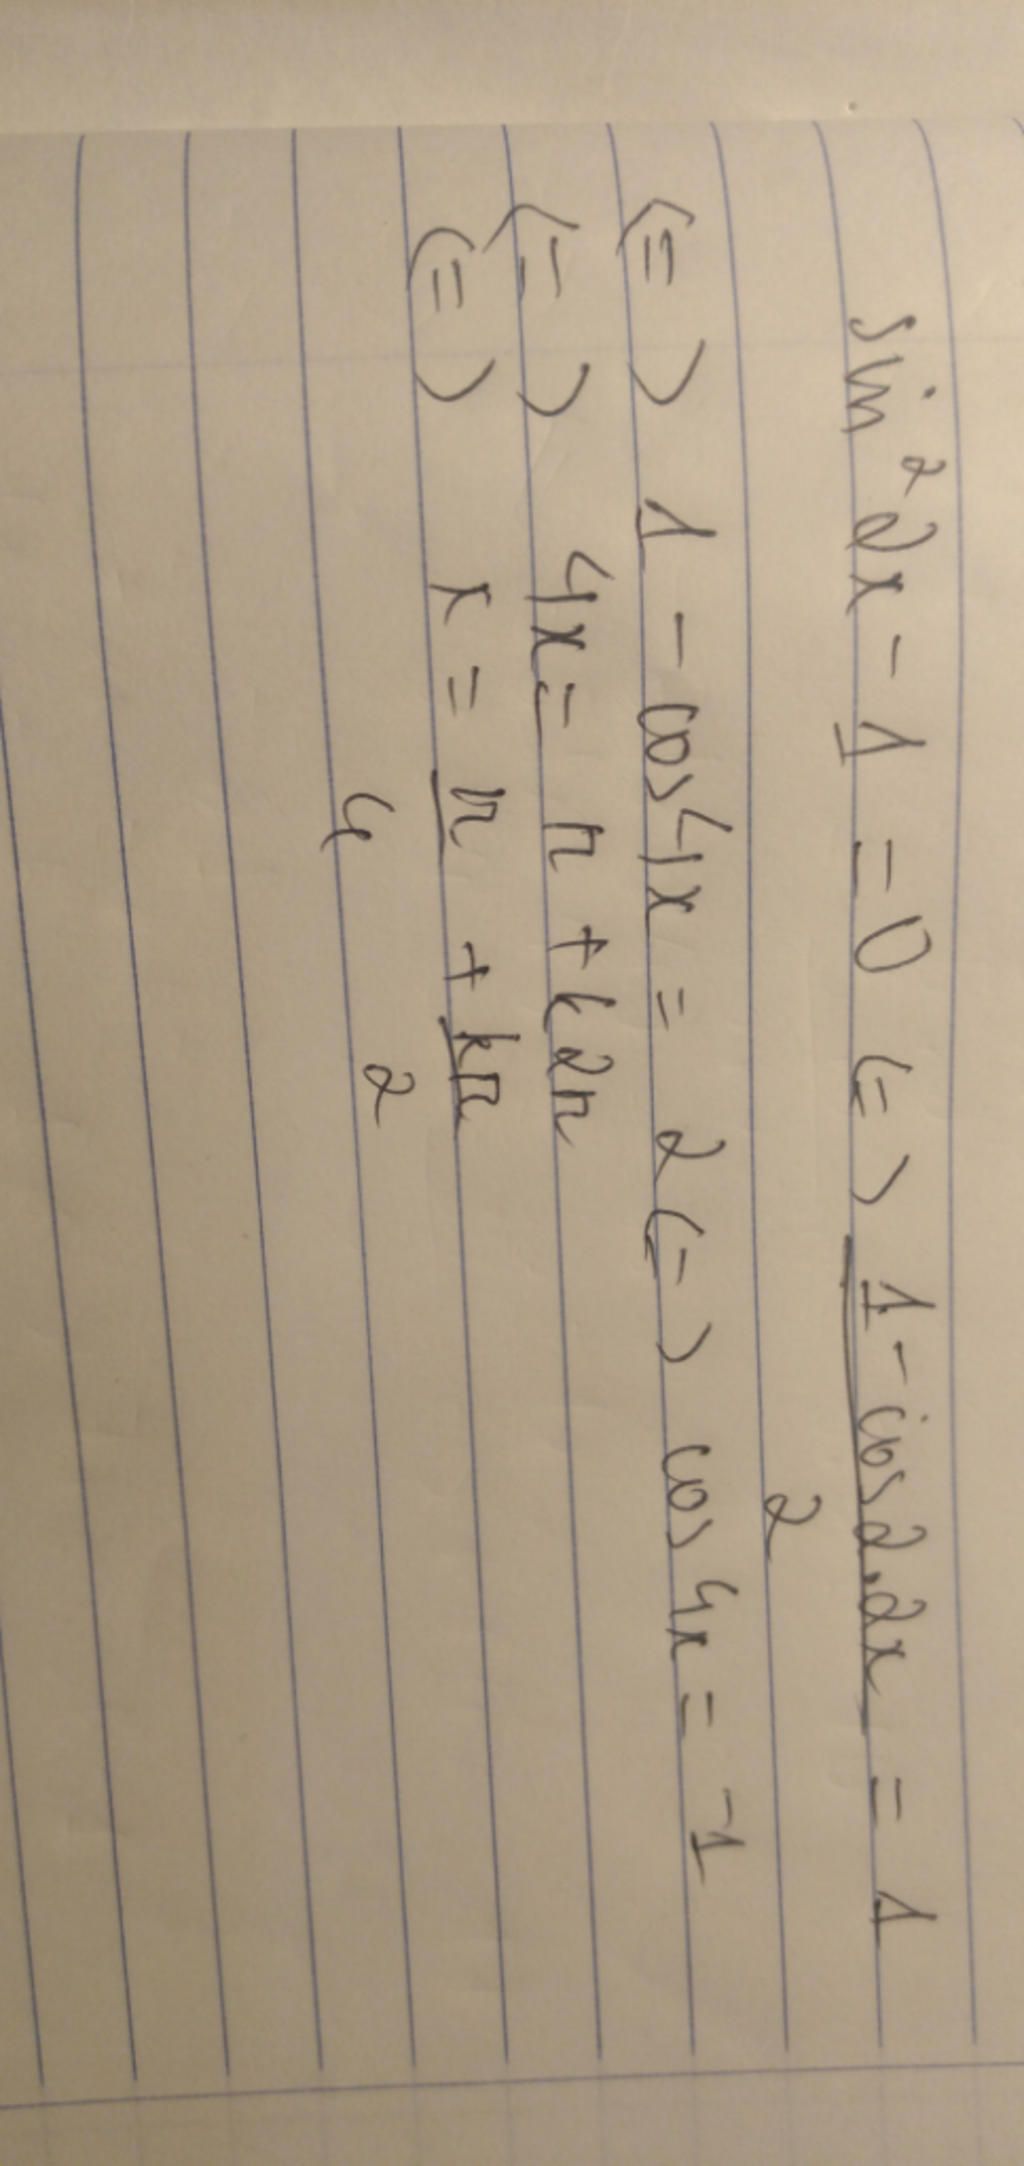 sin²2x - 1 = 0 <=> (1 - cos2.2x)/2 = 1
<=> 1 - cos4x = 2 <=> cos4x = -1
<=> 4x = π + k2π
<=> x = π/4 + kπ/2